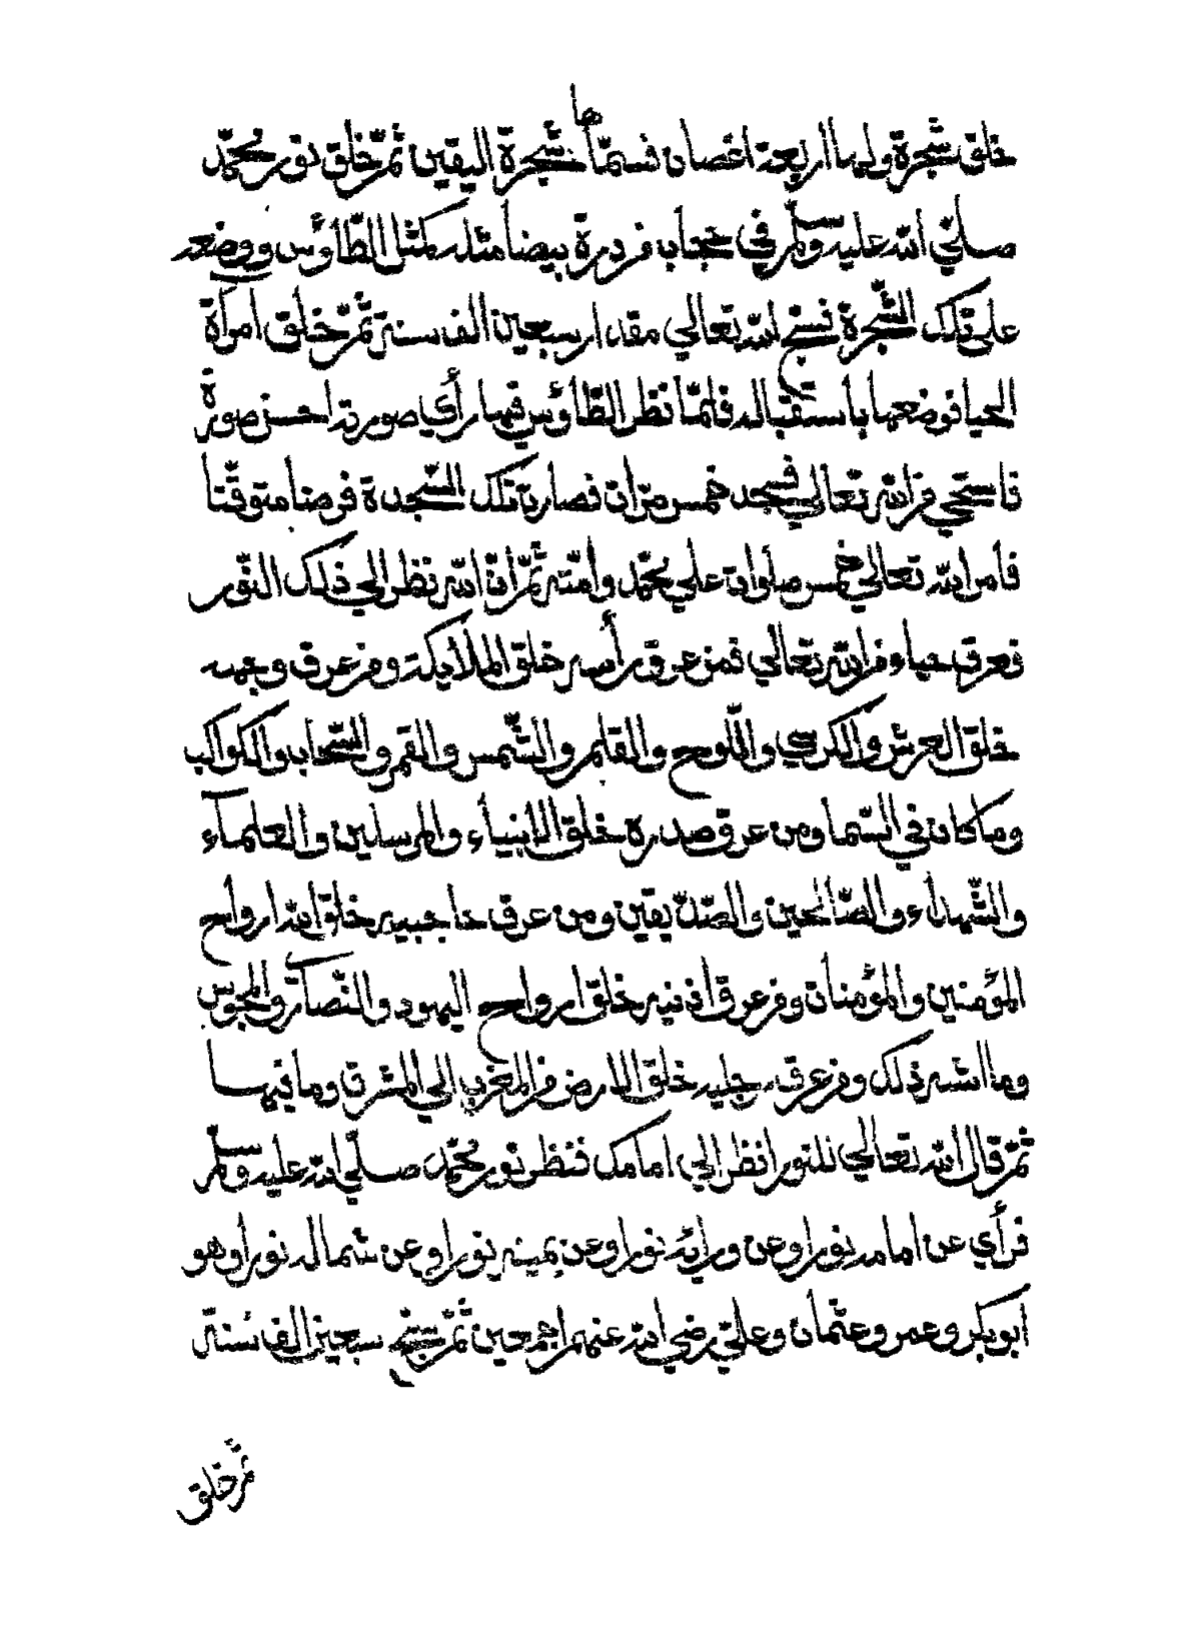 خلق شجرة ولها اربعة اغصان فسمّاها شجرة اليقين ثمّ خلق نور محمّد
صلّي الله عليه وسلّم في حجاب من درة بيضا مثله كمثل الطّاؤس ووضعه
علي تلك الشّجرة فسبّح الله تعالي مقدار سبعين الف سنة ثمّ خلق امرأة
الحيا فوضعها باستقباله فلمّا نظر الطّاؤس فيها رأي صورته احسن صورة
فاستحي من الله تعالي فسجد خمس مرّات فصارت تلك السّجدة فرضا متوقّتا
فأمر الله تعالي خمس صلوات علي محمّد وامّته ثمّ انّ الله نظر الي ذلك النّور
فعرق حياء من الله تعالي فمن عرق رأسه خلق الملأيكة ومن عرق وجهه
خلق العرش والكرسي واللّوح والقلم والشّمس والقمر والسّحاب والكواكب
وما كان في السّما ومن عرق صدره خلق الانبياء والمرسلين والعلماء
والشّهدآء والصّالحين والصّدّيقين ومن عرق حاجبيه خلق الله ارواح
المؤمنين والمؤمنات ومن عرق اذنيه خلق ارواح اليهود والنّصاري والمجوس
وما اشبه ذلك ومن عرق رجليه خلق الارض من المغرب الي المشرق وما فيها
ثمّ قال الله تعالي للنور انظر الي امامك فنظر نور محمّد صلّي الله عليه وسلّم
فرأي عن امامه نورا وعن ورائه نورا وعن يمينه نورا وعن شماله نورا وهو
ابوبكر وعمر وعثمان وعليّ رضي الله عنهم اجمعين ثمّ سبّح سبعين الف سنة
ثمّ خلق